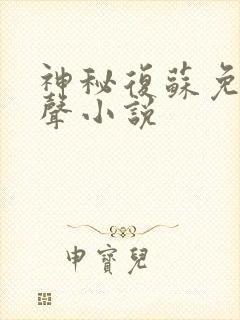 神秘復蘇免
聲小說
申寶兒